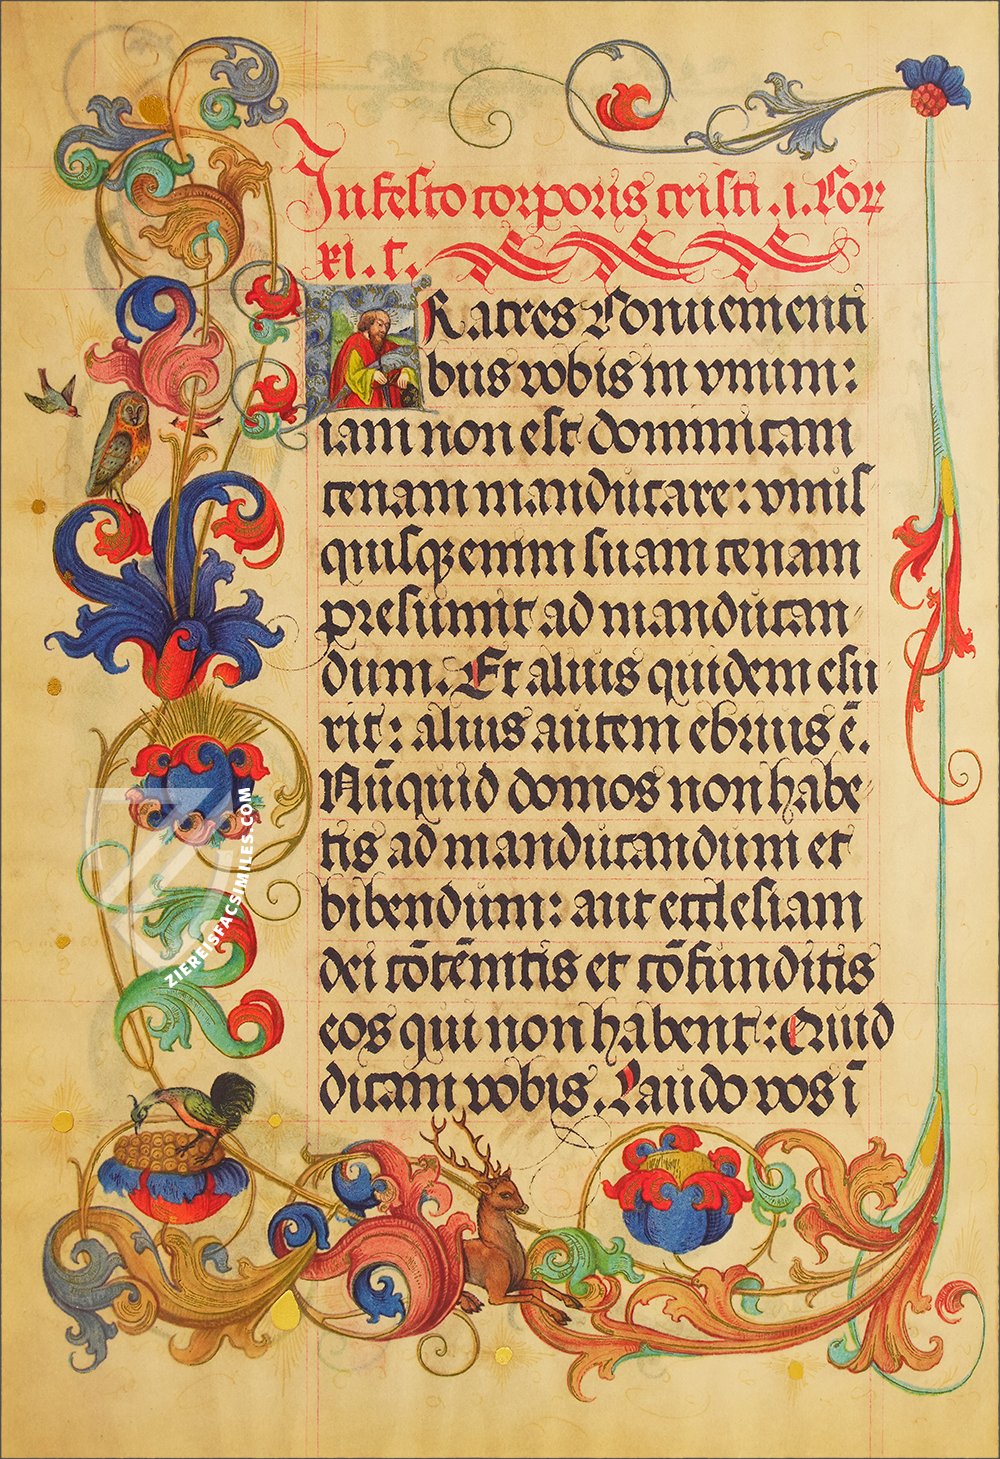 In festo corporis cristi .i. Cor
xi. c.
FRatres Conuenienti
bus vobis in vnum:
iam non est dominicam
cenam manducare: vnus
quisqꝫ enim suam cenam
presumit ad manducan
dum. Et alius quidem esu
rit: alius autem ebrius ē.
Nūquid domos non habe
tis ad manducandum et
bibendum: aut ecclesiam
dei cōtēnitis et cōfunditis
eos qui non habent: Quid
dicam vobis. Laudo vos ī
ZIEREISFACSIMILES.COM